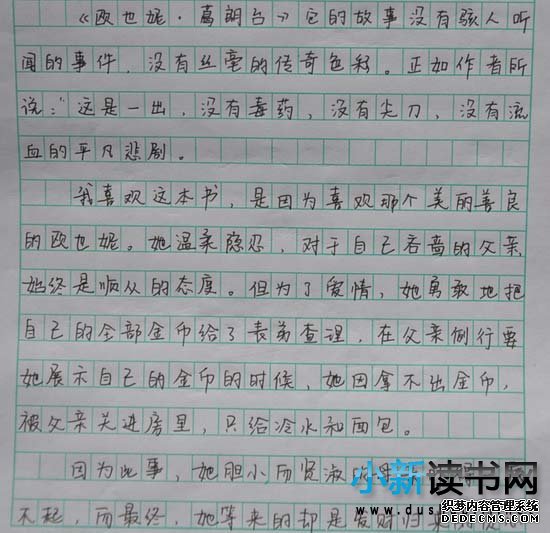 《欧也妮·葛朗台》它的故事没有骇人听
闻的事件，没有丝毫的传奇色彩。正如作者所
说："这是一出，没有毒药，没有尖刀，没有流
血的平凡悲剧。
我喜欢这本书，是因为喜欢那个美丽善良
的欧也妮。她温柔隐忍，对于自己吝啬的父亲
始终是顺从的态度。但为了爱情，她勇敢地把
自己的全部金币给了表弟查理，在父亲例行要
她展示自己的金币的时候，她因拿不出金币，
被父亲关进房里，只给冷水和面包。
因为此事，她胆小而贤淑的
小新读书网
www.dus
织梦内容管理系统
DEDECMS.COM
不起，而最终，她等来的却是发财归来